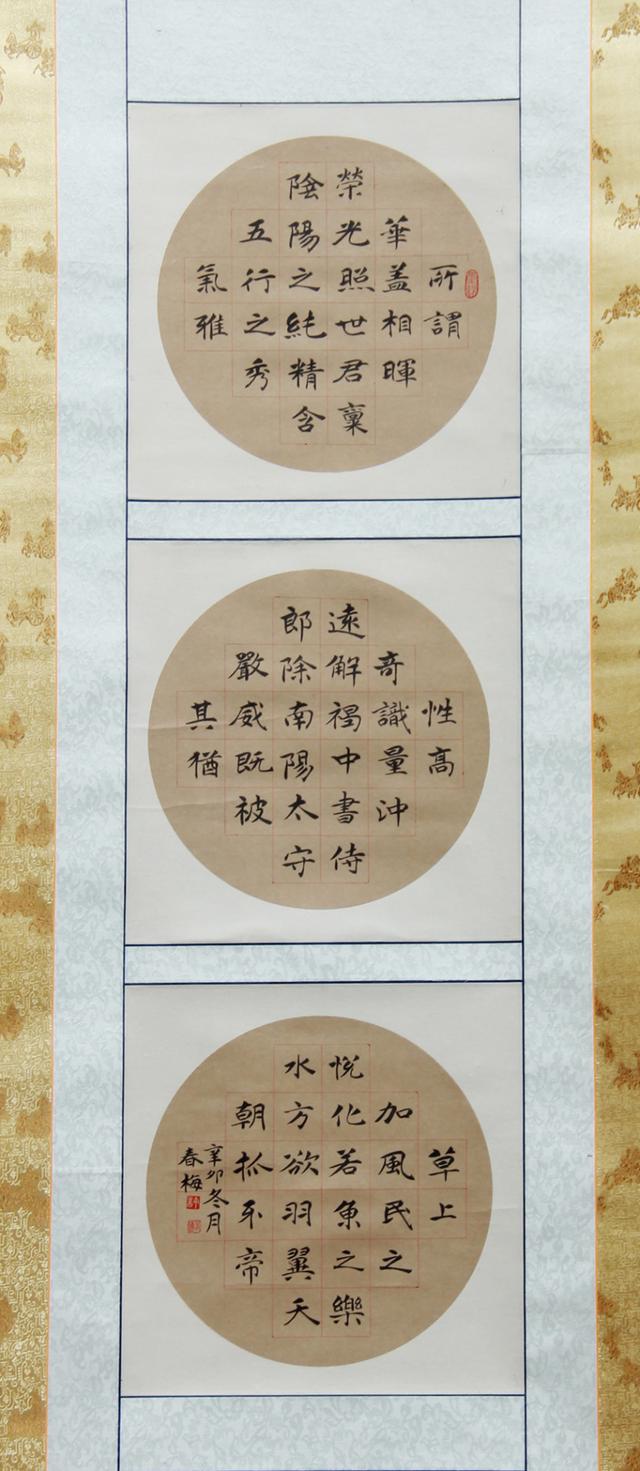 所謂
華蓋相暉
榮光照世君稟
陰陽之純精含
五行之秀
氣雅
性髙
奇識量沖
遠解褐中書侍
郎除南陽太守
嚴威既被
其猶
草上
加風民之
悅化若魚之樂
水方欲羽翼天
朝抓牙帝
辛卯冬月
春梅